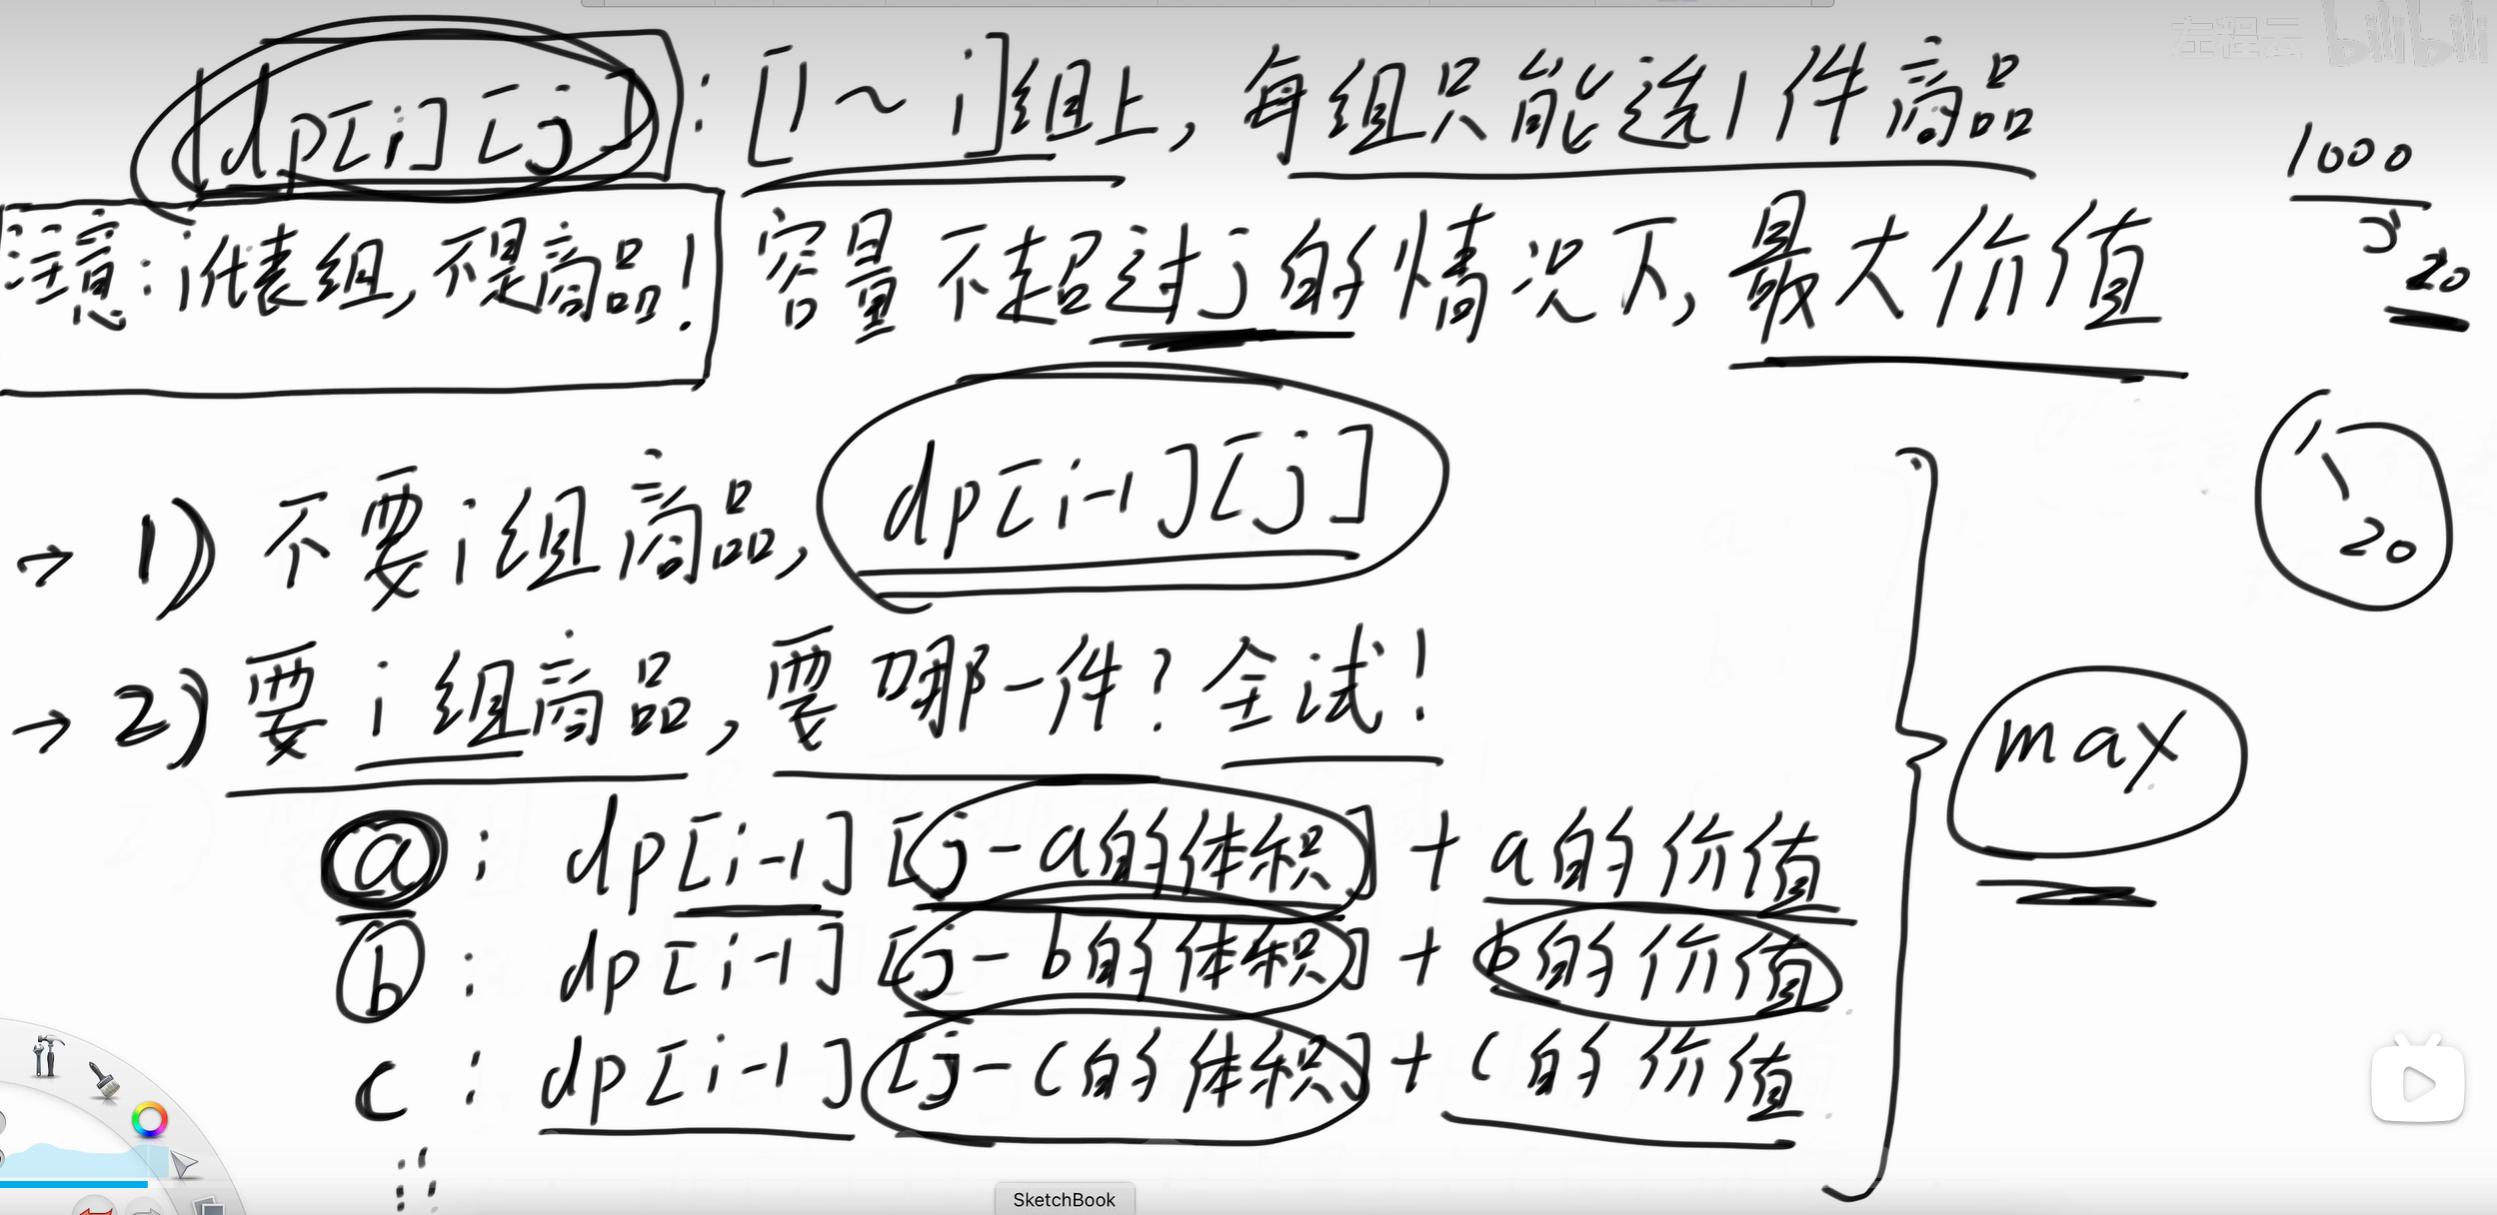 左程云 bilibili
dp[i][j]：[1~i]组上，每组只能选1件商品
1000
注意：i代表组，不是商品！
容量不超过j的情况下，最大价值
20
1) 不要i组商品，dp[i-1][j]
1
20
2) 要i组商品，要哪一件？全试！
max
a：dp[i-1][j-a的体积]+a的价值
b：dp[i-1][j-b的体积]+b的价值
c：dp[i-1][j-c的体积]+c的价值
SketchBook